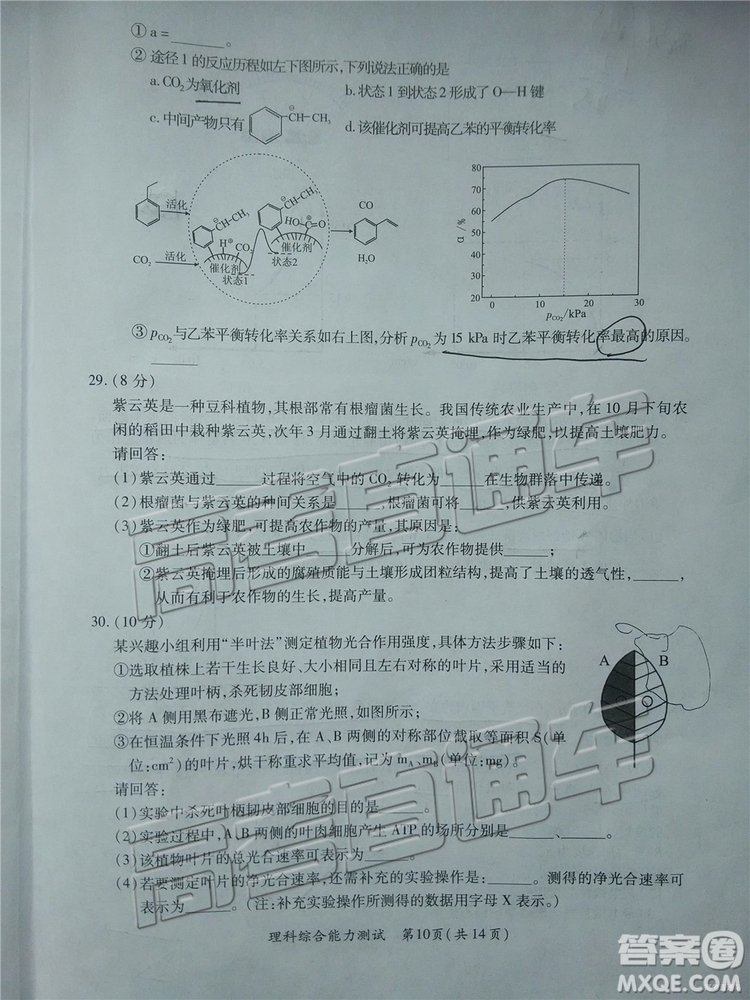 ① a=______。
② 途径1的反应历程如左下图所示，下列说法正确的是
a. CO₂为氧化剂 b. 状态1到状态2形成了O—H键
c. 中间产物只有 ⊖CH—CH₃ d. 该催化剂可提高乙苯的平衡转化率
活化
CO₂ 活化
⊖CH—CH₃
H⊕ CO₂
催化剂
状态1
⊖CH—CH₃
HO C=O
催化剂
状态2
CO
H₂O
80
70
60
50
40
30
20
α/%
0 10 20 30
pCO₂/kPa
③ pCO₂与乙苯平衡转化率关系如右上图，分析pCO₂为15 kPa时乙苯平衡转化率最高的原因。
______
29. (8分)
紫云英是一种豆科植物，其根部常有根瘤菌生长。我国传统农业生产中，在10月下旬农
闲的稻田中栽种紫云英，次年3月通过翻土将紫云英掩埋，作为绿肥，以提高土壤肥力。
请回答：
(1)紫云英通过______过程将空气中的CO₂转化为______在生物群落中传递。
(2)根瘤菌与紫云英的种间关系是______，根瘤菌可将______，供紫云英利用。
(3)紫云英作为绿肥，可提高农作物的产量，其原因是：
①翻土后紫云英被土壤中______分解后，可为农作物提供______；
②紫云英掩埋后形成的腐殖质能与土壤形成团粒结构，提高了土壤的透气性，______，
从而有利于农作物的生长，提高产量。
30. (10分)
某兴趣小组利用“半叶法”测定植物光合作用强度，具体方法步骤如下：
①选取植株上若干生长良好、大小相似、左右对称的叶片，采用适当的
方法处理叶柄，杀死韧皮部细胞；
②将A侧用黑布遮光，B侧正常光照，如图所示；
③在恒温条件下光照4h后，在A、B两侧的对称部位截取等面积S(单
位:cm²)的叶片，烘干称重求平均值，记为m_A、m_B(单位:mg)。
A B
请回答：
(1)实验中杀死叶柄韧皮部细胞的目的是______。
(2)实验过程中，A、B两侧的叶肉细胞产生ATP的场所分别是______、______。
(3)该植物叶片的总光合速率可表示为______。
(4)若要测定叶片的净光合速率，还需补充的实验操作是：______。测得的净光合速率可
表示为______。(注：补充实验测得的数据用字母X表示。)
理科综合能力测试 第10页(共14页)
高考直通车
高考直通车
答案圈
MXQE.COM